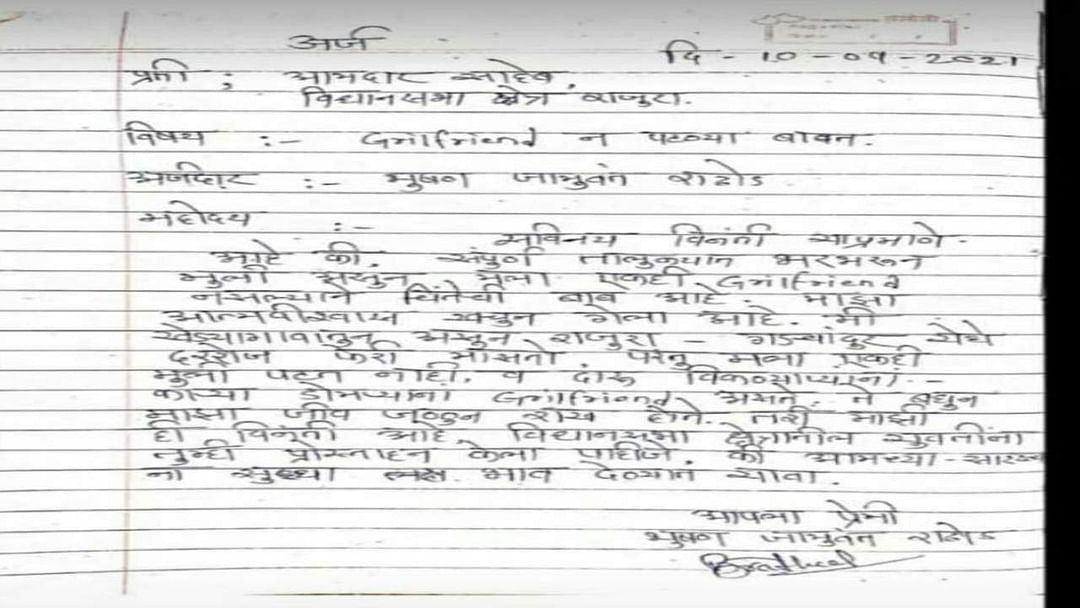 अर्ज
दि - 10 - 09 - 2021
प्रती ; आमदार साहेब,
विधानसभा क्षेत्र राजुरा.
विषय :- Grilfriend न पटण्या बाबत.
अर्जदार :- भुषण जामुवंत राठोड
महोदय :-
सविनय विनंती याप्रमाणे
आहे की, संपुर्ण तालुक्यात भरभरून
मुली असुन मला एकही Grilfriend
नसल्याने चिंतेची बाब आहे. माझा
आत्मवीश्वास खचुन गेला आहे. मी
खेड्यागावातुन असुन राजुरा - गडचांदुर येथे
दररोज फेरी मारतो परंतु मला एकही
मुली पटत नाही. व दारू विकणाऱ्यांना -
काऱ्या डोमड्यांना Grilfriend असते. ते बघुन
माझा जीव जळुन राख होते. तरी माझी
ही विनंती आहे, विधानसभा क्षेत्रातील युवतींना
तुम्ही प्रोस्ताहन केला पाहीजे, की आमच्या - सारख्य
ना सुद्धा भाव देण्यात यावा.
आपला प्रेमी
भुषण जामुवंत राठोड